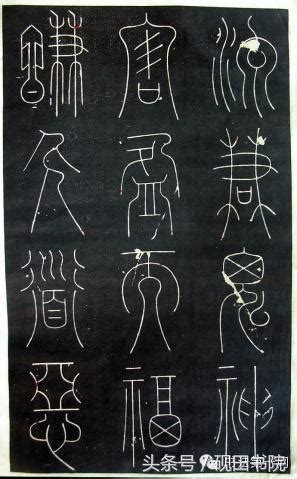 流兼鬼神
害盈而福
謙人道惡
头条号／砚田书院